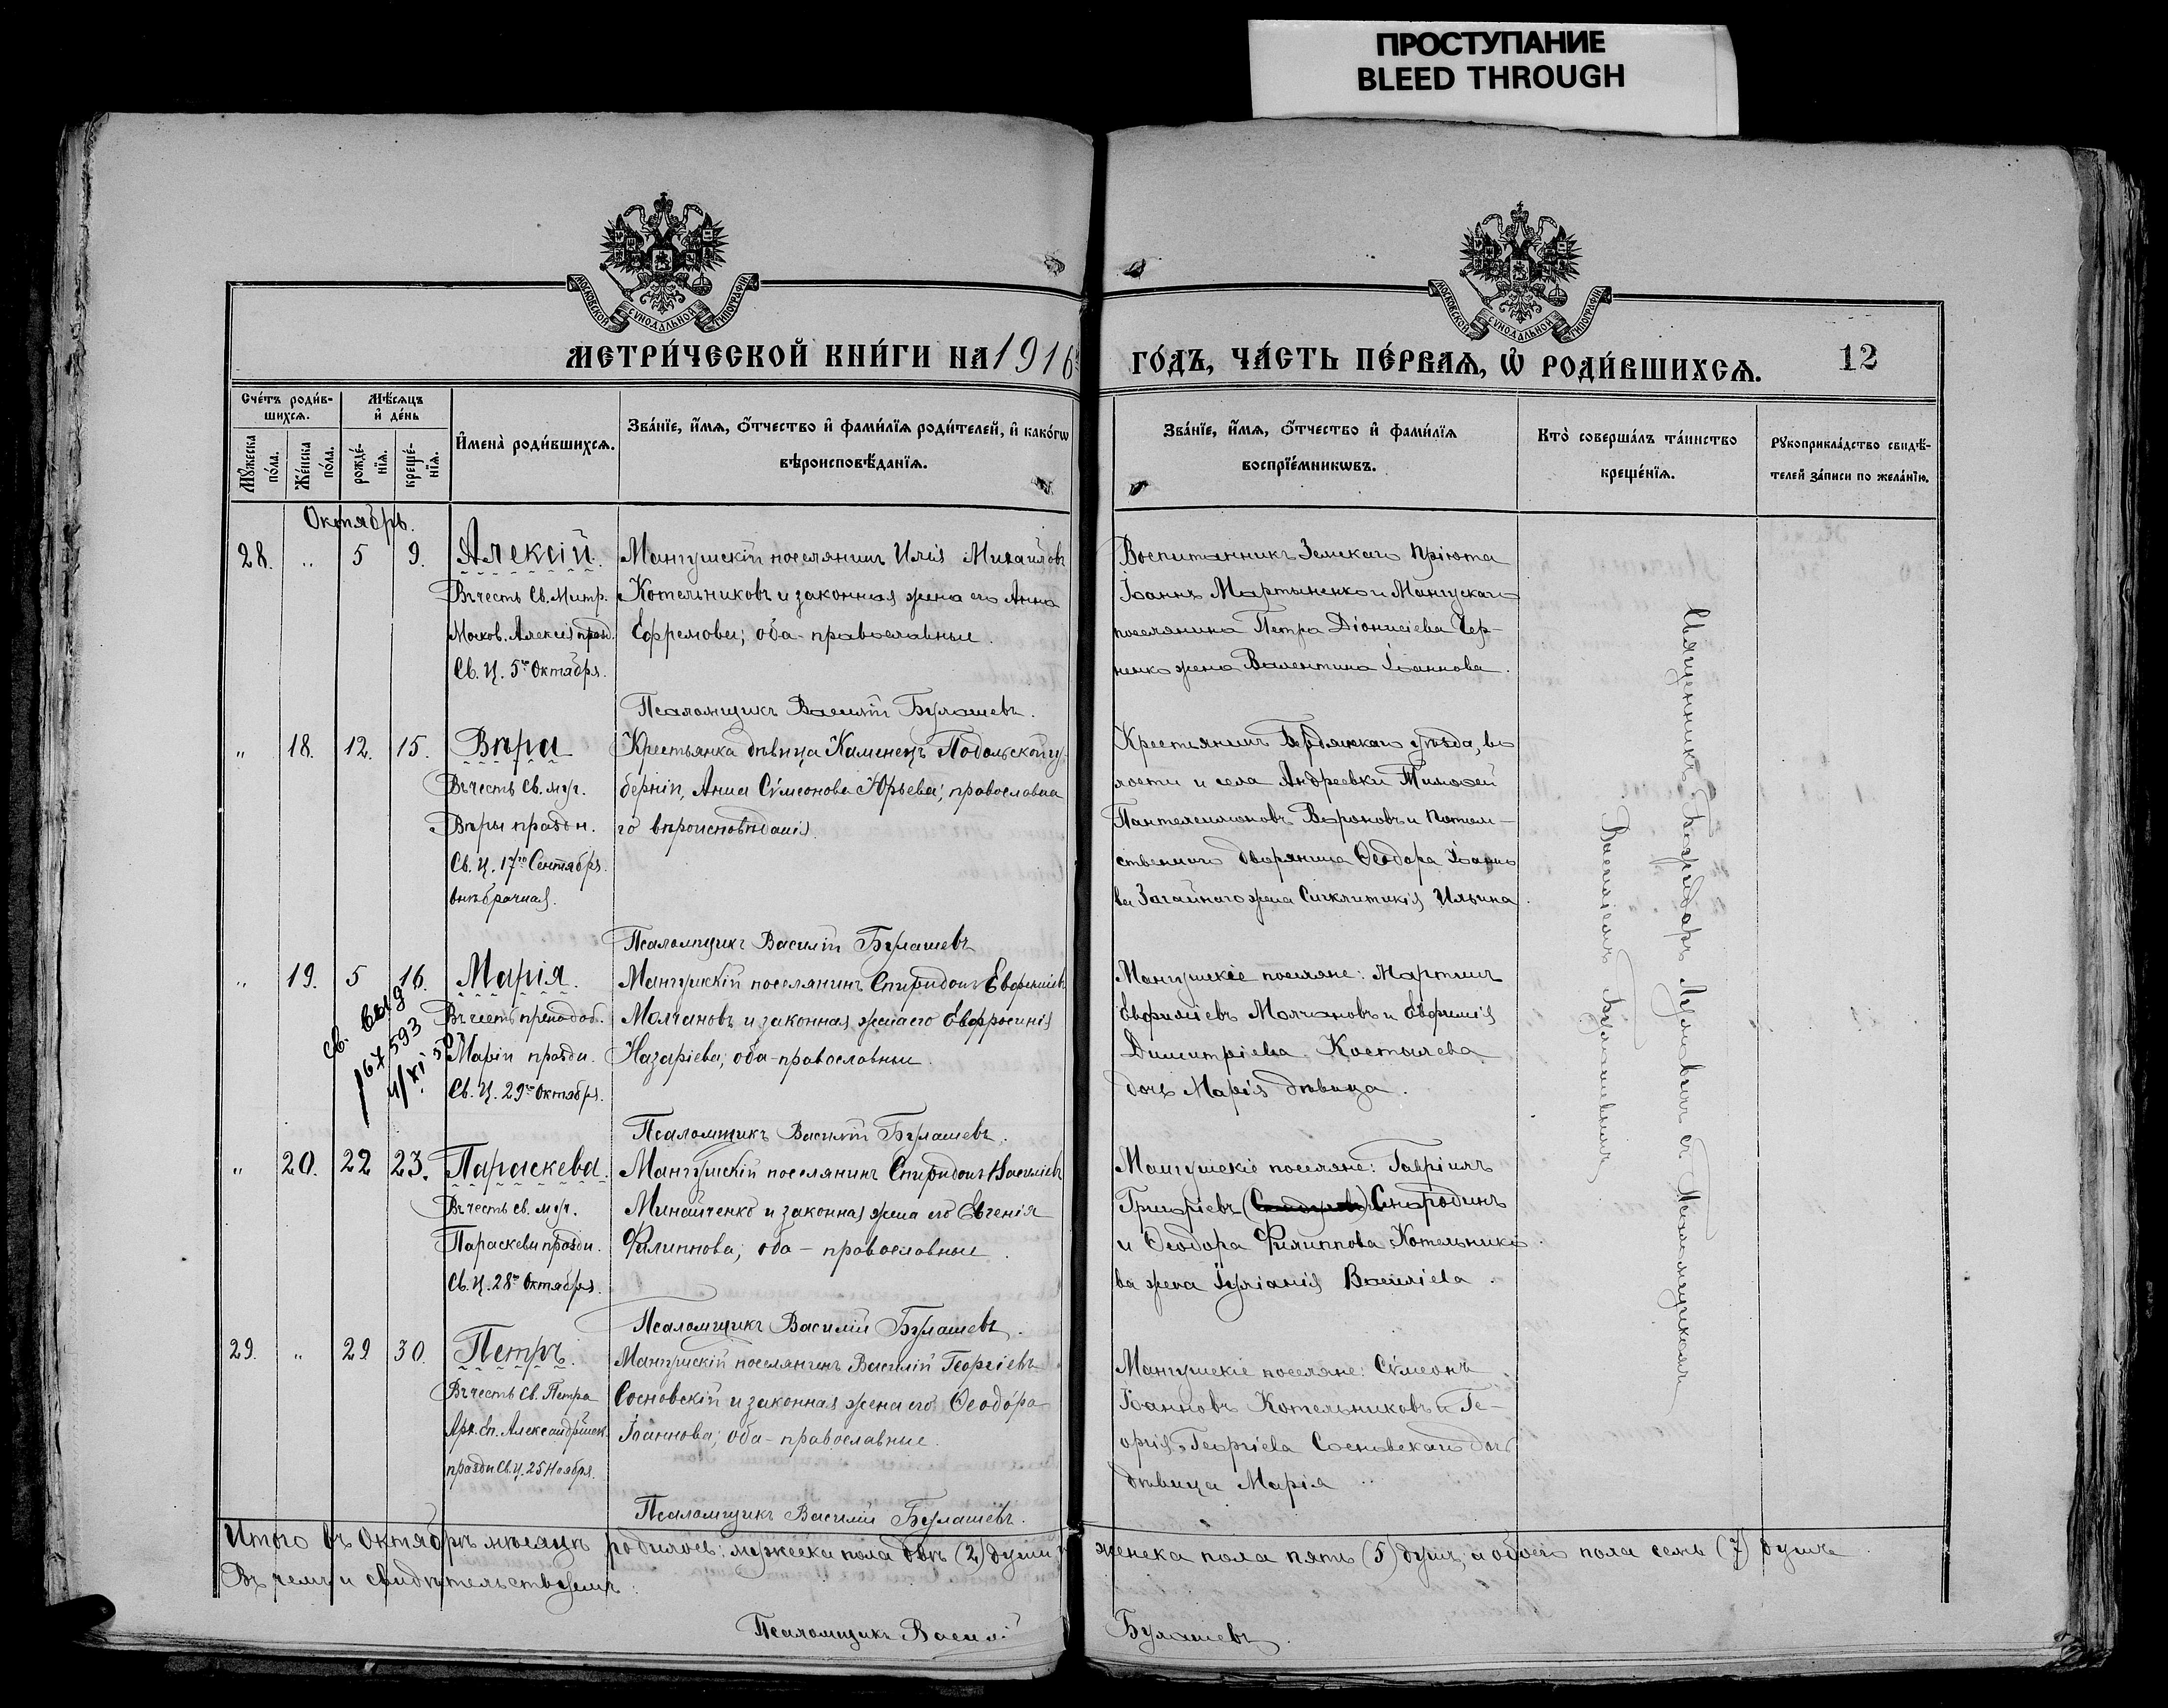 ПРОСТУПАНИЕ
BLEED THROUGH
МОСКОВСКОЙ СѴНОДАЛЬНОЙ ТИПОГРАФІИ
МОСКОВСКОЙ СѴНОДАЛЬНОЙ ТИПОГРАФІИ
МЕТРИ́ЧЕСКОЙ КНИ́ГИ НА 1916й
ГО́ДЪ, ЧА́СТЬ ПЕ́РВАѦ, Ѡ҆ РОДИ́ВШИХСѦ.
12
Сче́тъ роди́в-
шихсѧ.
Мѣ́сѧцъ
и҆ де́нь
Мꙋ́жеска
по́ла.
Же́нска
по́ла.
рожде́-
нїѧ.
креще́-
нїѧ.
И҆мена̀ роди́вшихсѧ.
Зва́нїе, и҆́мѧ, ѻ҆́тчество и҆ фами́лїѧ роди́телей, и҆ како́гѡ
вѣроисповѣ́данїѧ.
Зва́нїе, и҆́мѧ, ѻ҆́тчество и҆ фами́лїѧ
воспрїе́мникѡвъ.
Кто̀ соверша́лъ та́инство
креще́нїѧ.
Рꙋкоприкла́дство свидѣ́-
телей за́писи по жела́нїю.
Октябрь.
28. „ 5 9. Алексій.
Въ честь Св. Митр.
Москов. Алексія празд.
Св. Ц. 5го Октября.
Мангушскій поселянинъ Илія Михайловъ
Котельниковъ и законная жена его Анна
Ефремова; оба - православные.
Псаломщикъ Василій Булашевъ.
Воспитанникъ Земскаго Пріюта
Іоаннъ Мартыненко и Мангушскаго
поселянина Петра Діонисіева Чер-
ненко жена Валентина Іоаннова.
„ 18. 12. 15. Вѣра
Въ честь Св. муч.
Вѣры праздн.
Св. Ц. 17го Сентября.
внѣбрачная.
Крестьянка дѣвица Каменецъ Подольской гу-
берніи, Анна Сѵмеонова Юрьева; православна
го вѣроисповѣданія.
Псаломщикъ Василій Булашевъ
Крестьянинъ Бердянскаго уѣзда, во
лости и села Андреевки Тимоѳей
Пантелеимоновъ Вороновъ и потом-
ственнаго дворянина Ѳеодора Іоанно
ва Загайнаго жена Синклитикія Ильина.
„ 19. 5 16. Марія.
Въ честь преподоб.
Маріи праздн.
Св. Ц. 29го Октября.
167593
Мангушскій поселянинъ Спиридонъ Евфиміевъ
Молчановъ и законная жена его Евфросинія
Назаріева; оба - православные.
Псаломщикъ Василій Булашевъ.
Мангушскіе поселяне: Мартинъ
Евфиміевъ Молчановъ и Евфимія
Димитріева Костылева
дочь Марія дѣвица.
„ 20. 22 23. Параскева.
Въ честь св. муч.
Параскевы праздн.
Св. Ц. 28го Октября.
Мангушскій поселянинъ Спиридонъ Василіевъ
Минайченко и законная жена его Евгенія
Филиппова; оба - православные.
Псаломщикъ Василій Булашевъ.
Мангушскіе поселяне: Гавріилъ
Григоріевъ Смородинъ
и Ѳеодора Филиппова Котельнико-
ва жена Іуліанія Василіева.
29. „ 29 30. Петръ.
Въ честь Св. Петра
Арх. еп. Александрійск.
праздн Св. Ц. 25 Ноября.
Мангушскій поселянинъ Василій Георгіевъ
Сосновскій и законная жена его Ѳеодора
Іоаннова; оба - православные.
Псаломщикъ Василій Булашевъ.
Мангушскіе поселяне: Сѵмеонъ
Іоанновъ Котельниковъ и Ге-
оргія Георгіева Сосновскаго дочь
дѣвица Марія
Священникъ съ Псаломщикомъ
Василіемъ Булашевымъ
Итого въ Октябрѣ мѣсяцѣ родилось: мужеска пола двѣ (2) души, женска пола пять (5) душъ, а обоего пола семь (7) душъ.
Въ чемъ и свидѣтельствуемъ:
Псаломщикъ Василій Булашевъ.